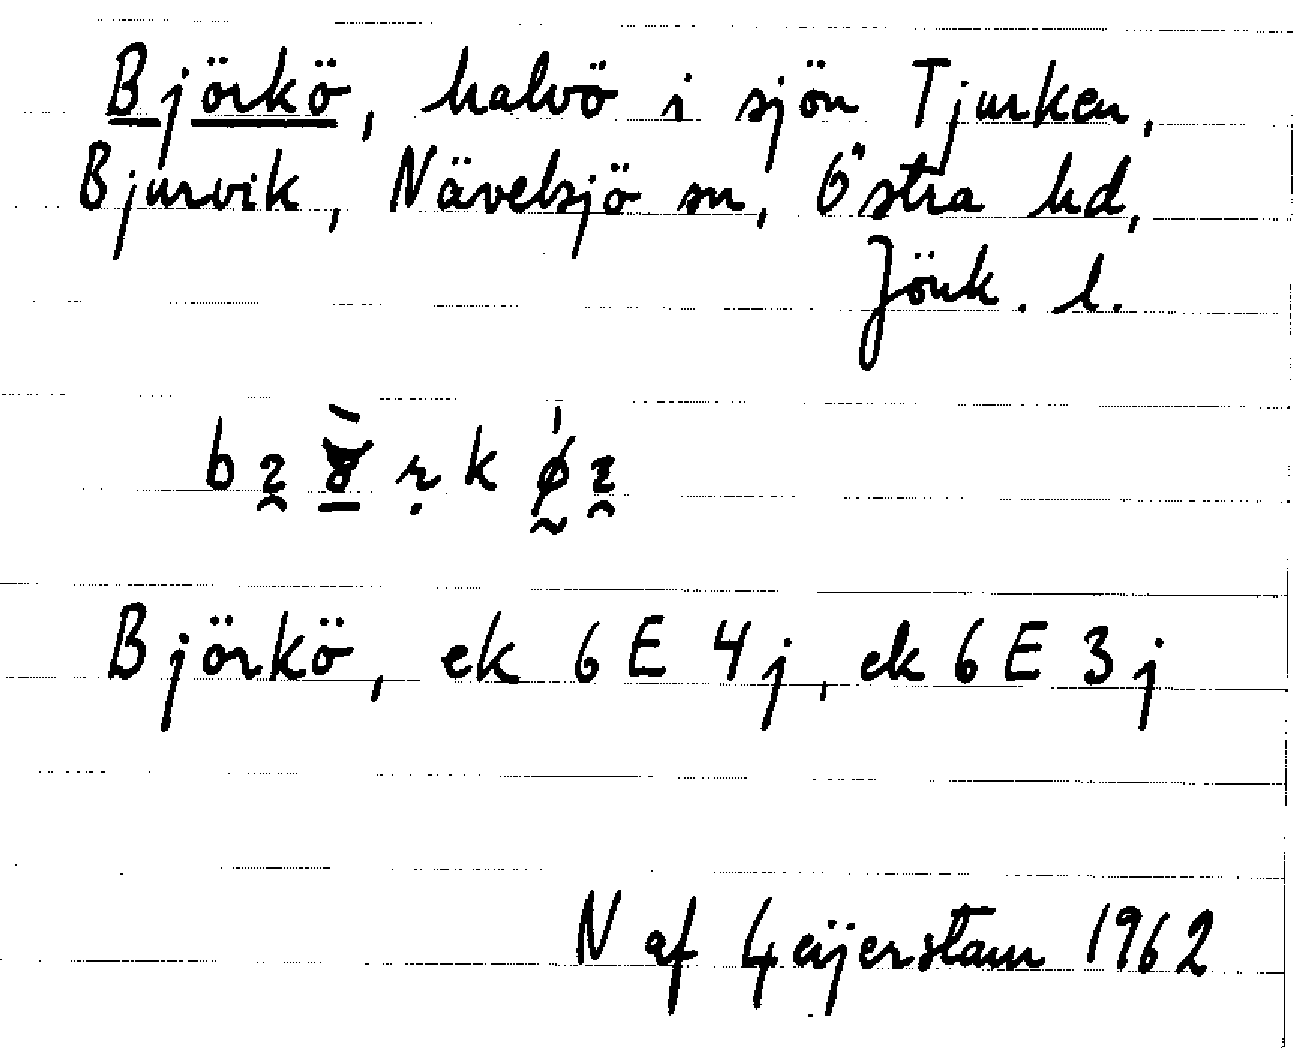 Björkö, halvö i sjön Tjurken,
Bjurvik, Nävelsjö sn, Östra hd,
Jönk. l.
Björkö, ek 6 E 4 j, ek 6 E 3 j
N af Geijerstam 1962